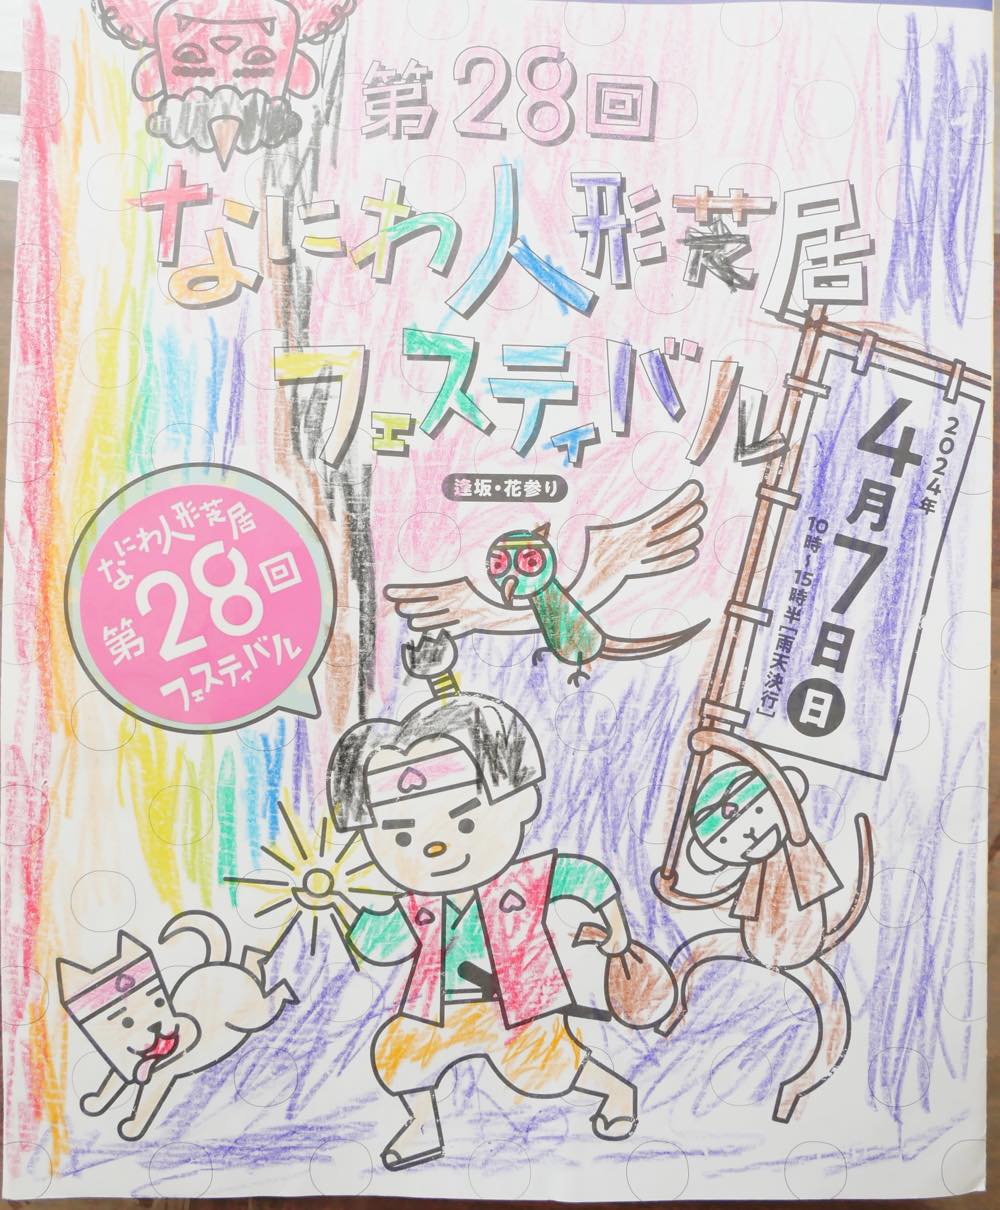 第28回
なにわ人形芝居
フェスティバル
逢坂・花参り
2024年
4月7日日
10時~15時半［雨天決行］
なにわ人形芝居
第28回
フェスティバル